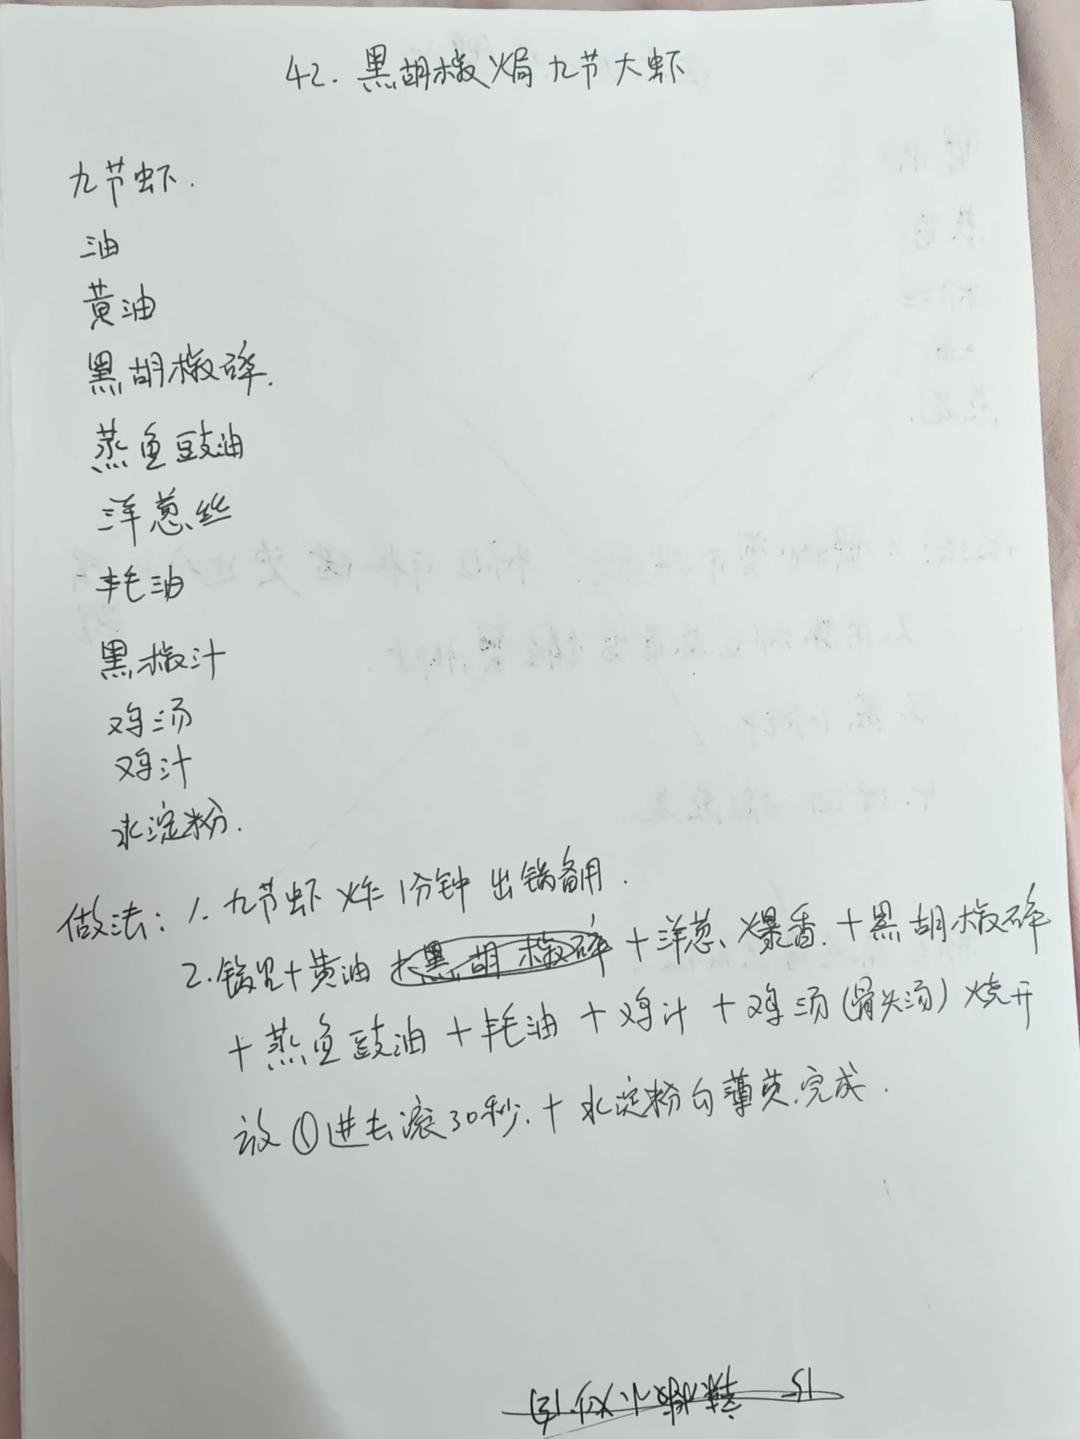 42. 黑胡椒焗九节大虾
九节虾.
油
黄油
黑胡椒碎.
蒸鱼豉油
洋葱丝
蚝油
黑椒汁
鸡汤
鸡汁
水淀粉.
做法: 1. 九节虾 炸 1分钟 出锅备用.
2. 锅里+黄油 +洋葱、爆香.+黑胡椒碎
+蒸鱼豉油+蚝油+鸡汁+鸡汤(骨头汤)烧开
放①进去滚30秒.+水淀粉勾薄芡.完成.